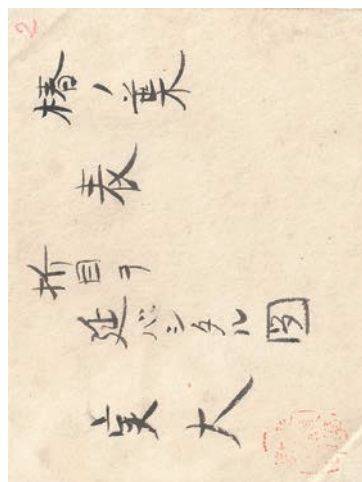 2
椿ノ葉
表
折目ヲ
延バシタル図
実大